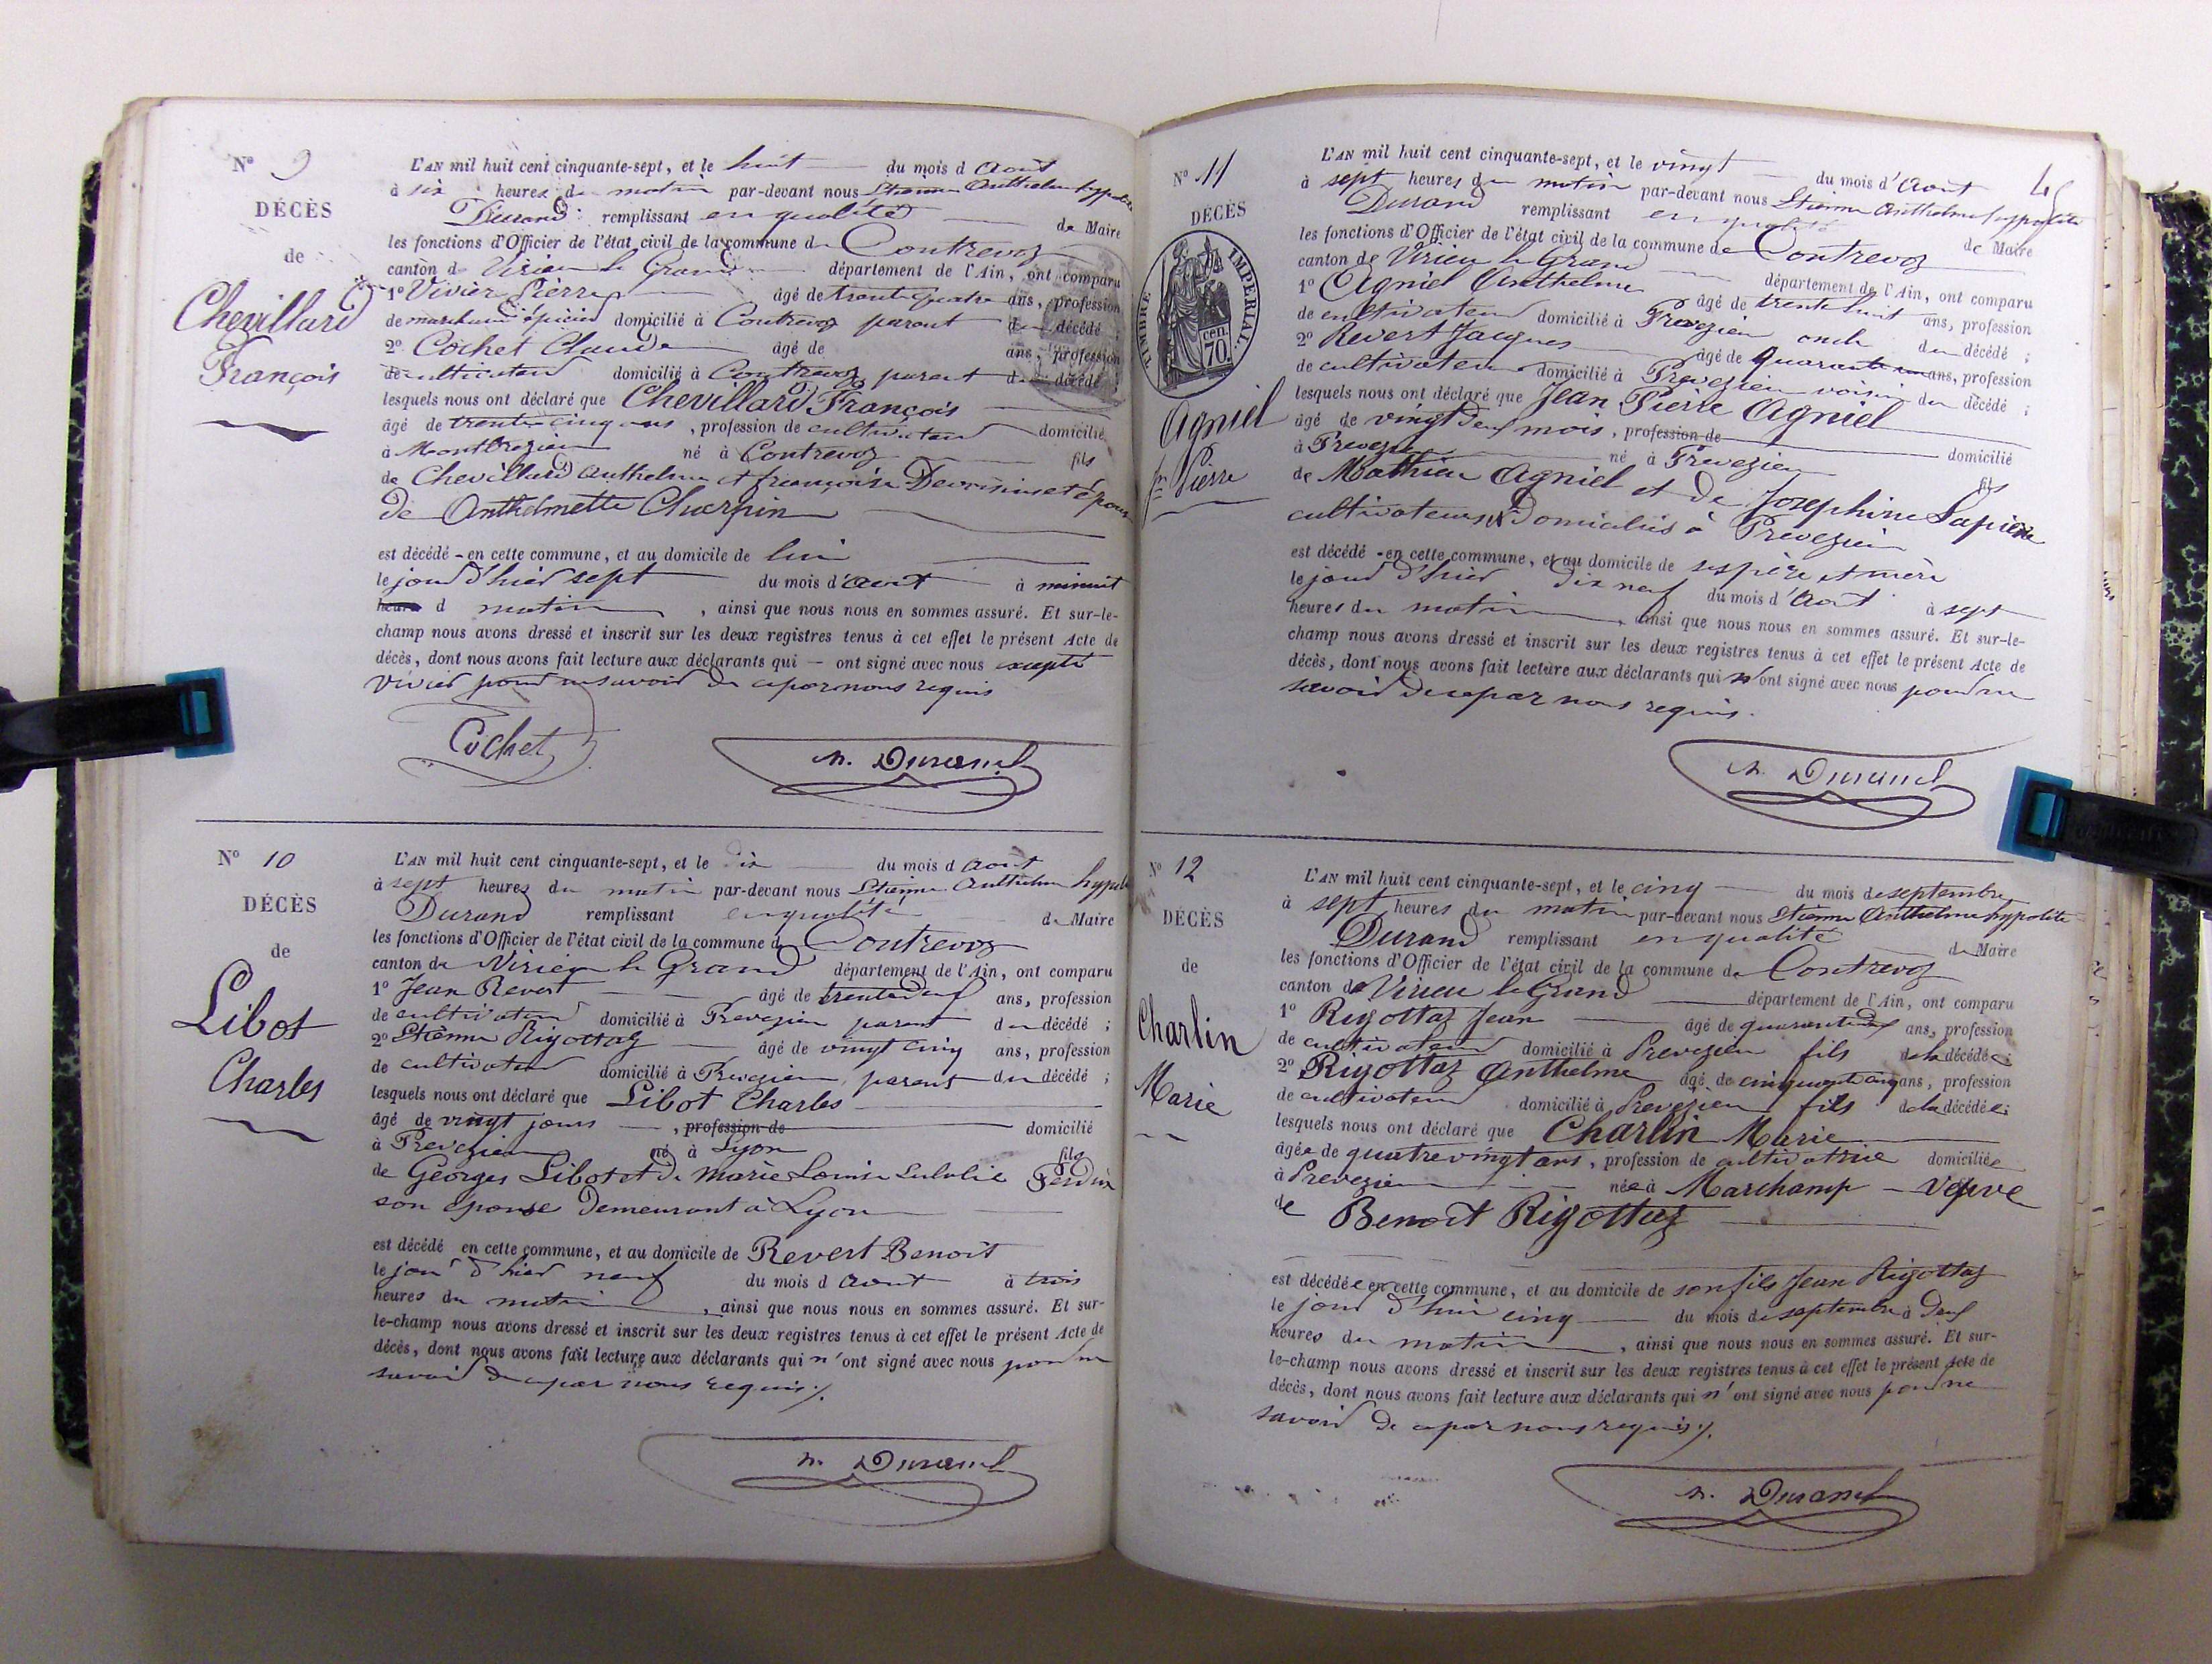 N° 9
DÉCÈS
de
Chevillard
François
L'AN mil huit cent cinquante-sept, et le huit du mois d Août
à six heures du matin par-devant nous Etienne Anthelme hypolite
Durand remplissant en qualité de Maire
les fonctions d'Officier de l'état civil de la commune de Contrevoz
canton de Virieu le Grand département de l'Ain, ont comparu
1° Vivier Pierre âgé de trente quatre ans, profession
de marchand épicier domicilié à Contrevoz parent du décédé ;
2° Cochet Claude âgé de ans, profession
de cultivateur domicilié à Contrevoz parent du décédé ;
lesquels nous ont déclaré que Chevillard François
âgé de trente cinq ans, profession de cultivateur domicilié
à Montbrezieu né à Contrevoz fils
de Chevillard Anthelme et françoise et époux
de Anthelmette Charpin
est décédé en cette commune, et au domicile de lui
le jour d'hier sept du mois d'Août à minuit
heures d matin, ainsi que nous nous en sommes assuré. Et sur-le-
champ nous avons dressé et inscrit sur les deux registres tenus à cet effet le présent Acte de
décès, dont nous avons fait lecture aux déclarants qui ont signé avec nous excepté
Vivier pour ne savoir de ce par nous requis
Cochet n. Durand
N° 10
DÉCÈS
de
Libot
Charles
L'AN mil huit cent cinquante-sept, et le dix du mois d Août
à sept heures du matin par-devant nous Etienne Anthelme hypolite
Durand remplissant en qualité de Maire
les fonctions d'Officier de l'état civil de la commune de Contrevoz
canton de Virieu le Grand département de l'Ain, ont comparu
1° Jean Revert âgé de trente deux ans, profession
de cultivateur domicilié à Prevezieu parent du décédé ;
2° Etienne Rigottaz âgé de vingt cinq ans, profession
de cultivateur domicilié à Prevezieu parent du décédé ;
lesquels nous ont déclaré que Libot Charles
âgé de vingt jours, profession de domicilié
à Prevezieu né à Lyon fils
de Georges Libot et de Marie Louise Eulalie Perdrix
son épouse demeurant à Lyon
est décédé en cette commune, et au domicile de Revert Benoit
le jour d'hier neuf du mois d Aout à trois
heures du matin, ainsi que nous nous en sommes assuré. Et sur-
le-champ nous avons dressé et inscrit sur les deux registres tenus à cet effet le présent Acte de
décès, dont nous avons fait lecture aux déclarants qui n'ont signé avec nous pour ne
savoir de ce par nous requis ./.
n. Durand
45
N° 11
DÉCÈS
TIMBRE IMPÉRIAL.
cen. 70.
Agniel
jn Pierre
L'AN mil huit cent cinquante-sept, et le vingt du mois d'Août
à sept heures du matin par-devant nous Etienne Anthelme hypolite
Durand remplissant en qualité de Maire
les fonctions d'Officier de l'état civil de la commune de Contrevoz
canton de Virieu le Grand département de l'Ain, ont comparu
1° Agniel Anthelme âgé de trente huit ans, profession
de cultivateur domicilié à Prevezieu oncle du décédé ;
2° Revert Jacques âgé de quarante ans, profession
de cultivateur domicilié à Prevezieu voisin du décédé ;
lesquels nous ont déclaré que Jean Pierre Agniel
âgé de vingt deux mois, profession de domicilié
à Prevezieu né à Prevezieu fils
de Mathieu Agniel et de Josephine Sapiere
cultivateurs domiciliés à Prevezieu
est décédé en cette commune, et au domicile de ses père et mère
le jour d'hier dix neuf du mois d'Août à sept
heures du matin, ainsi que nous nous en sommes assuré. Et sur-le-
champ nous avons dressé et inscrit sur les deux registres tenus à cet effet le présent Acte de
décès, dont nous avons fait lecture aux déclarants qui n'ont signé avec nous pour ne
savoir de ce par nous requis.
n. Durand
N° 12
DÉCÈS
de
Charlin
Marie
L'AN mil huit cent cinquante-sept, et le cinq du mois de septembre
à sept heures du matin par-devant nous Etienne Anthelme hypolite
Durand remplissant en qualité de Maire
les fonctions d'Officier de l'état civil de la commune de Contrevoz
canton de Virieu le Grand département de l'Ain, ont comparu
1° Rigottaz Jean âgé de quarante deux ans, profession
de cultivateur domicilié à Prevezieu fils de la décédée ;
2° Rigottaz Anthelme âgé de cinquante cinq ans, profession
de cultivateur domicilié à Prevezieu fils de la décédée ;
lesquels nous ont déclaré que Charlin Marie
âgée de quatre vingt ans, profession de cultivatrice domiciliée
à Prevezieu née à Marchamp veuve
de Benoit Rigottaz
est décédée en cette commune, et au domicile de son fils Jean Rigottaz
le jour d'hui cinq du mois de septembre à deux
heures du matin, ainsi que nous nous en sommes assuré. Et sur-
le-champ nous avons dressé et inscrit sur les deux registres tenus à cet effet le présent Acte de
décès, dont nous avons fait lecture aux déclarants qui n'ont signé avec nous pour ne
savoir de ce par nous requis ./.
n. Durand